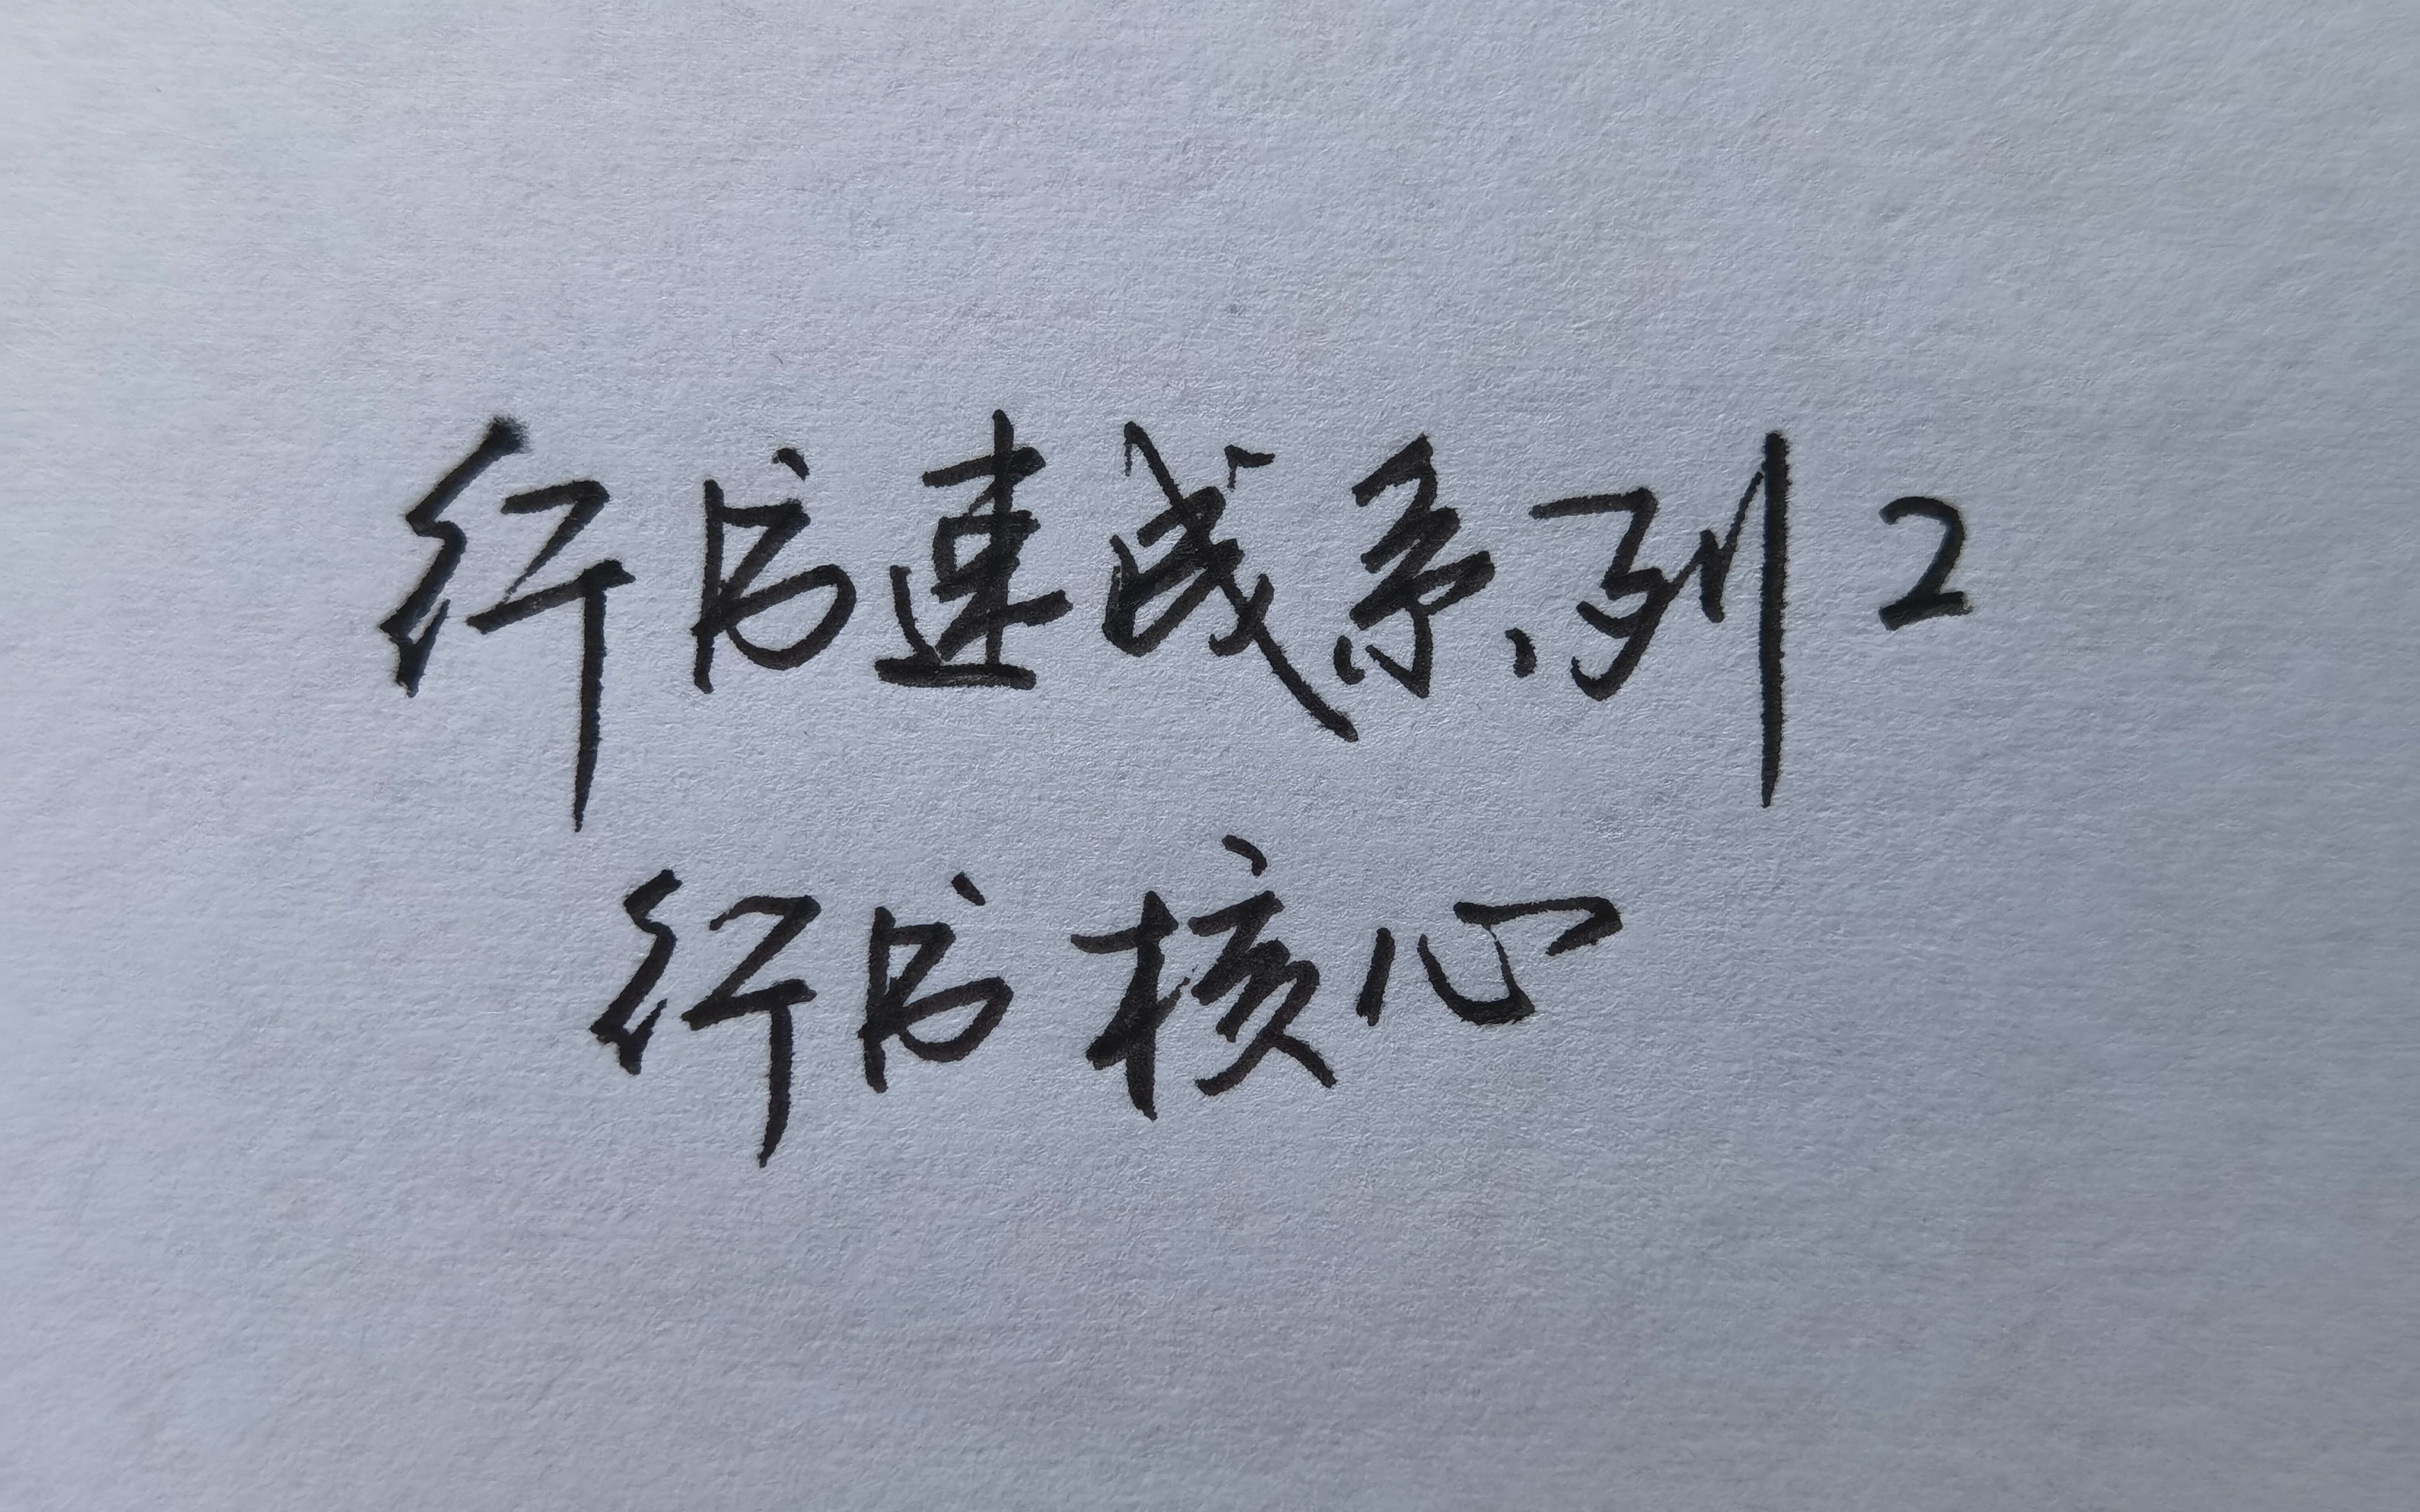 行书速成系列2
行书核心